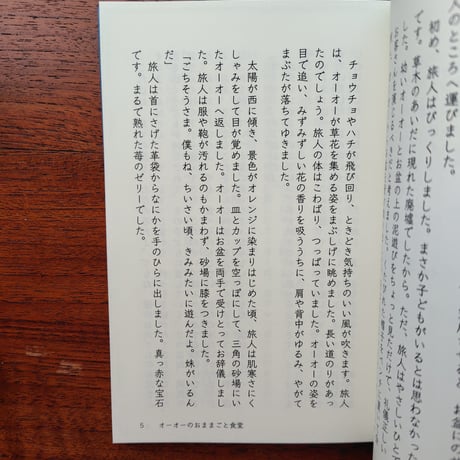 人のところへ運びました。
初め、旅人はびっくりしました。まさか子どもがいるとは思わなかった
です。草木のあいだに現れた廃墟でしたから。ただ、旅人はやさしいひと
した。幼いオーオーとお盆の上の泥遊びをちょっと見ただけで、
チョウチョやハチが飛び回り、ときどき気持ちのいい風が吹きます。旅人
は、オーオーが草花を集める姿をまぶしげに眺めました。長い道のりがあっ
たのでしょう。旅人の体はこわばり、つっぱっていました。オーオーの姿を
目で追い、みずみずしい花の香りを吸ううちに、肩や背中がゆるみ、やがて
まぶたが落ちてゆきました。
太陽が西に傾き、景色がオレンジに染まりはじめた頃、旅人は肌寒さにく
しゃみをして目が覚めました。皿とカップを空っぽにして、三角の砂場にい
たオーオーへ返しました。オーオーはお盆を両手で受けとってお辞儀しまし
た。旅人は服や鞄が汚れるのもかまわず、砂場に膝をつきました。
「ごちそうさま。僕もね、ちいさい頃、きみみたいに遊んだよ。妹がいるん
だ」
旅人は首にさげた革袋からなにかを手のひらに出しました。真っ赤な宝石
です。まるで熟れた苺のゼリーでした。
5 オーオーのおままごと食堂